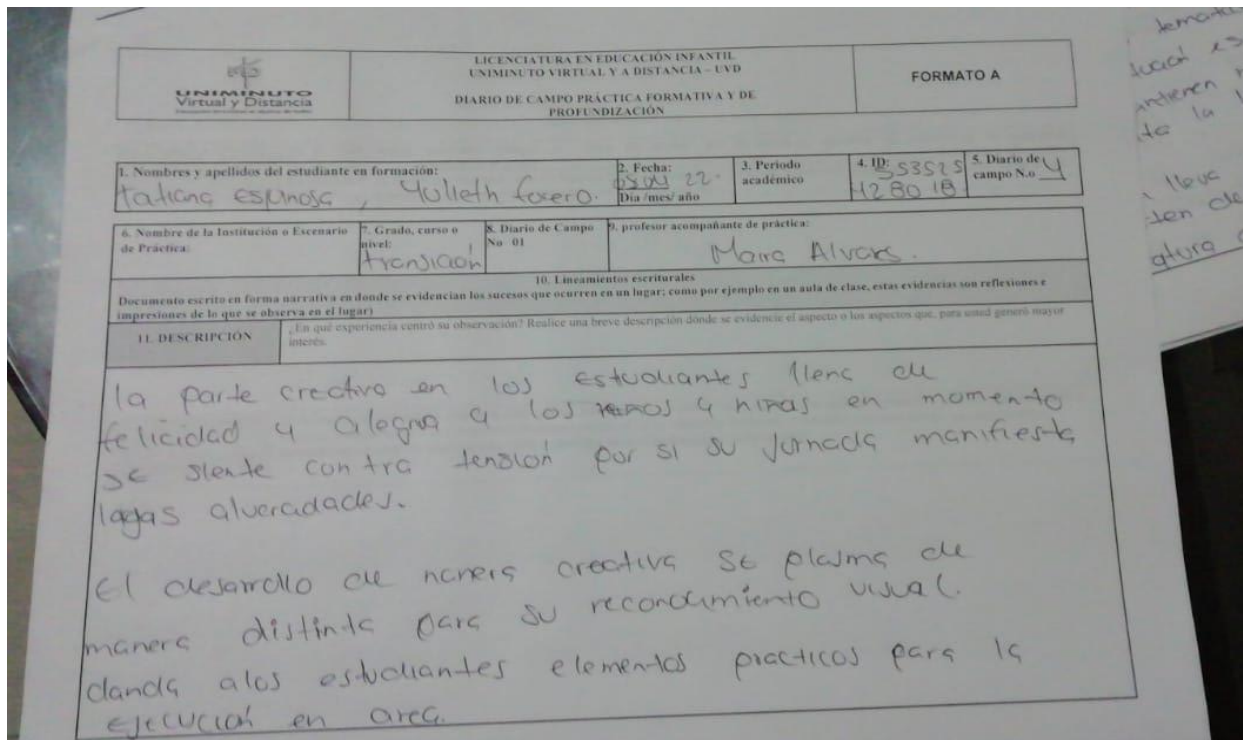 UNIMINUTO
Virtual y Distancia
LICENCIATURA EN EDUCACIÓN INFANTIL
UNIMINUTO VIRTUAL Y A DISTANCIA – UVD
DIARIO DE CAMPO PRÁCTICA FORMATIVA Y DE
PROFUNDIZACIÓN
FORMATO A
1. Nombres y apellidos del estudiante en formación:
tatiana espinosa, Yulieth forero.
2. Fecha:
22
Dia /mes/ año
3. Periodo
académico
4. ID: 53525
428018
5. Diario de
campo N.o 4
6. Nombre de la Institución o Escenario
de Práctica:
7. Grado, curso o
nivel:
transición
8. Diario de Campo
No 01
9. profesor acompañante de práctica:
Maira Alvars.
10. Lineamientos escriturales
Documento escrito en forma narrativa en donde se evidencian los sucesos que ocurren en un lugar; como por ejemplo en un aula de clase, estas evidencias son reflexiones e
impresiones de lo que se observa en el lugar)
11. DESCRIPCIÓN
¿En qué experiencia centró su observación? Realice una breve descripción donde se evidencie el aspecto o los aspectos que, para usted generó mayor
interés.
la parte creativa en los estudiantes llena de
felicidad y alegria a los y niñas en momento
se siente contra tensión por si su jornada manifiesta
El desarrollo de manera creativa se plasma de
manera distinta para su reconocimiento visual.
danda alos estudiantes elementos practicos para la
ejecución en area.
la
lleva